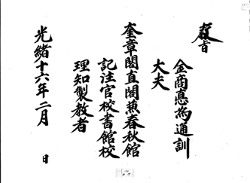 教旨
金商悳為通訓
大夫
奎章閣直閣兼春秋館
記注官校書館校
理知製教者
光緒十六年二月 日